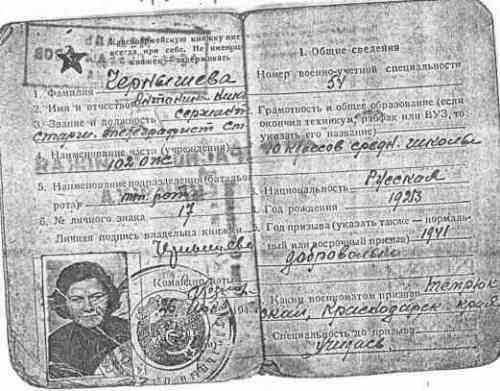 Красноармейскую книжку иметь
всегда при себе. Не имеющих
книжку задерживать
1. Фамилия Чернышева
2. Имя и отчество Антонина
3. Звание и должность сержант
старш. телеграфист
4. Наименование части (учреждения)
102 опс
5. Наименование подразделения
рота
6. № личного знака 17
Личная подпись владельца книжки
Чернышева
Командир роты
26
I. Общие сведения
Номер военно-учетной специальности
54
Грамотность и общее образование (если
окончил техникум, рабфак или ВУЗ, то
указать его название)
10 классов средн. школы
Национальность Русская
Год рождения 1923
Год призыва (указать также — нормаль-
ный или досрочный призыв) 1941
Каким военкоматом призван
Краснодарск. края
Специальность до призыва
училась